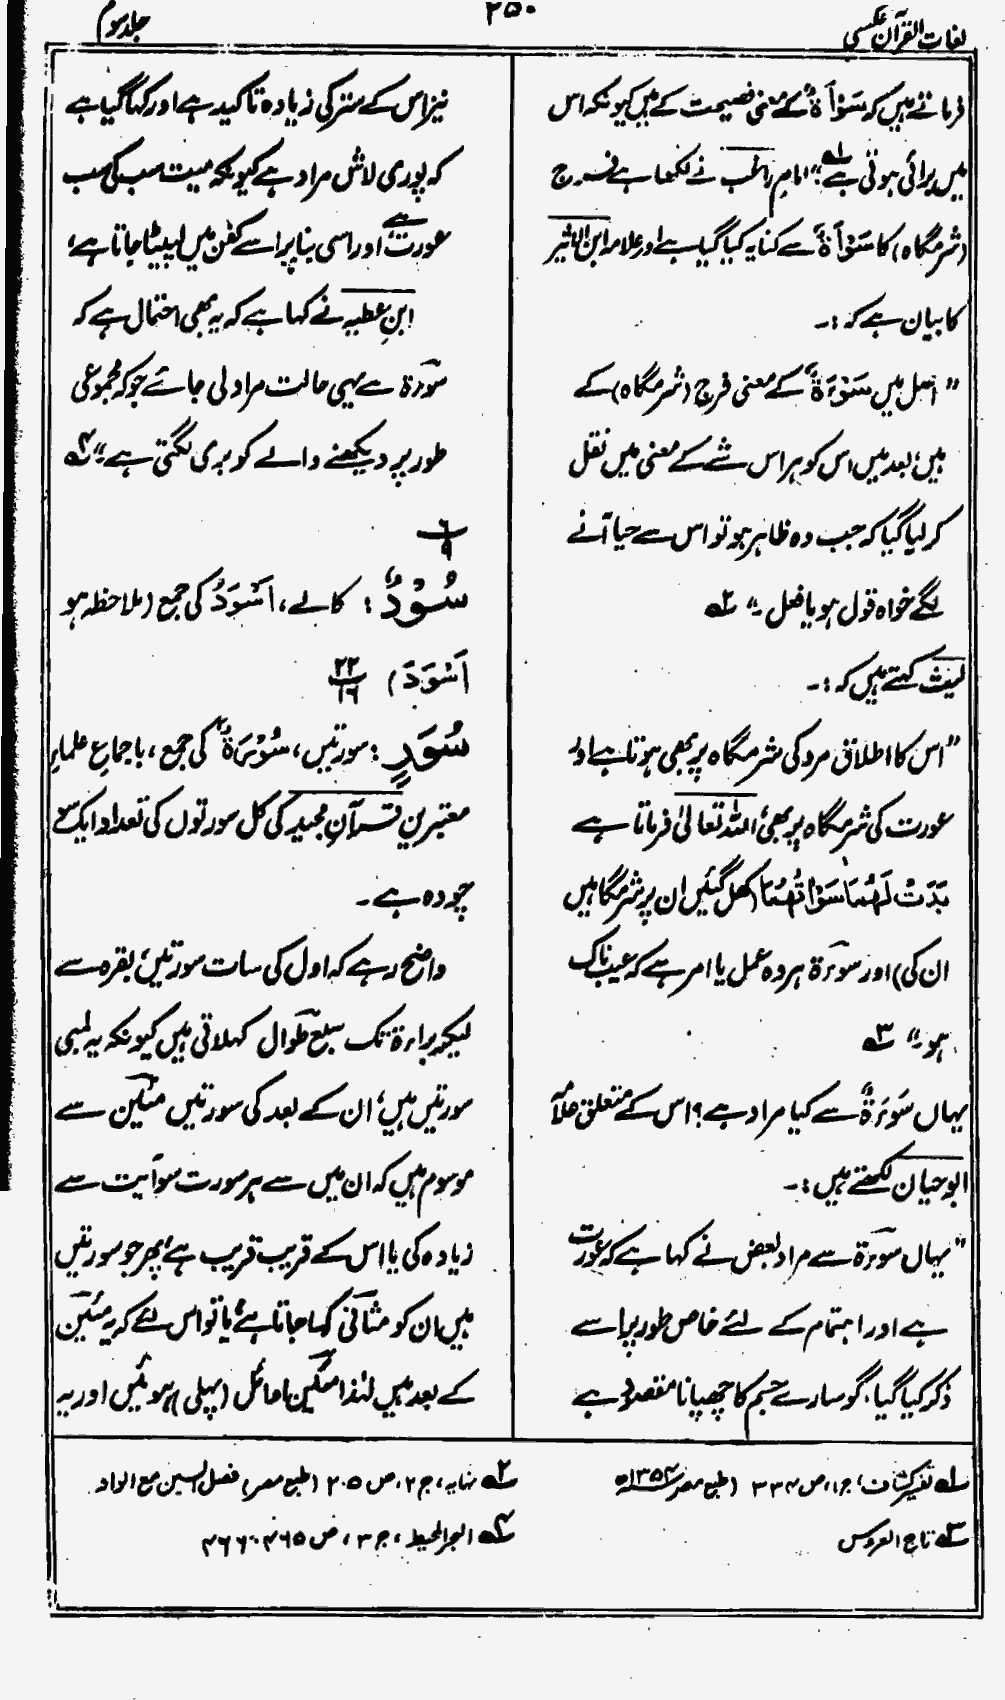 لغات القرآن عکسی
۲۵۰
جلد سوم
فرماتے ہیں کہ سَوْأَةٌ کے معنی فصیحت کے ہیں کیونکہ اس
میں برائی ہوتی ہے" امام راغب نے لکھا ہے فرج
(شرمگاہ) کا سَوْأَةٌ سے کنایہ کیا گیا ہے اور علامہ ابن الاثیر
کا بیان ہے کہ :۔
" اصل میں سَوْءَةٌ کے معنی فرج (شرمگاہ) کے
ہیں، بعد میں اس کو ہر اس شے کے معنی میں نقل
کر لیا گیا کہ جب وہ ظاہر ہو تو اس سے حیا آنے
لگے خواہ قول ہو یا فعل ۔" ۲؎
لیث کہتے ہیں کہ :۔
" اس کا اطلاق مرد کی شرمگاہ پر بھی ہوتا ہے اور
عورت کی شرمگاہ پر بھی، اللہ تعالیٰ فرماتا ہے
بَدَتْ لَهُمَا سَوْاٰتُهُمَا (کھل گئیں ان پر شرمگاہیں
ان کی) اور سوءة ہر وہ عمل یا امر ہے کہ عیب ناک
ہو۔" ۳؎
یہاں سَوْءَةٌ سے کیا مراد ہے؟ اس کے متعلق علامہ
ابوحیان لکھتے ہیں :۔
" یہاں سوءة سے مراد بعض نے کہا ہے کہ عورت
ہے اور اہتمام کے لئے خاص طور پر اسے
ذکر کیا گیا، گو سارے جسم کا چھپانا مقصود ہے
نیز اس کے ستر کی زیادہ تاکید ہے اور کہا گیا ہے
کہ پوری لاش مراد ہے کیونکہ میت سب کی سب
عورت ہے، اور اسی بنا پر اسے کفن میں لپیٹا جاتا ہے،
ابن عطیہ نے کہا ہے کہ یہ بھی احتمال ہے کہ
سوءة سے یہی حالت مراد لی جائے جو کہ مجموعی
طور پر دیکھنے والے کو بری لگتی ہے" ۴؎
۶
۹
سُوْدٌ : کالے، اَسْوَدُ کی جمع (ملاحظہ ہو
اَسْوَدَ) ۲۲
۱۶
سُوَرٍ : سورتیں، سُوْرَةٌ کی جمع، باجماع علماء
معتبرین قرآن مجید کی کل سورتوں کی تعداد ایک سو
چودہ ہے ۔
واضح رہے کہ اول کی سات سورتیں، بقرہ سے
لیکر براءة تک سبع طوال کہلاتی ہیں کیونکہ یہ لمبی
سورتیں ہیں، ان کے بعد کی سورتیں مئین سے
موسوم ہیں کہ ان میں سے ہر سورت سو آیت سے
زیادہ کی یا اس کے قریب قریب ہے، پھر جو سورتیں
ہیں ان کو مثانی کہا جاتا ہے، یا تو اس لئے کہ یہ مئین
کے بعد ہیں لہٰذا مئین اوائل (پہلی) ہوئیں اور یہ
۱؎ تفسیر کشاف، ج ۱، ص ۳۳۴ (طبع مصر ۱۳۵۴ھ)
۲؎ نہایہ، ج ۲، ص ۲۰۵ (طبع مصر) فصل السین مع الواو
۳؎ تاج العروس
۴؎ البحر المحیط، ج ۳، ص ۴۶۵، ۴۶۶